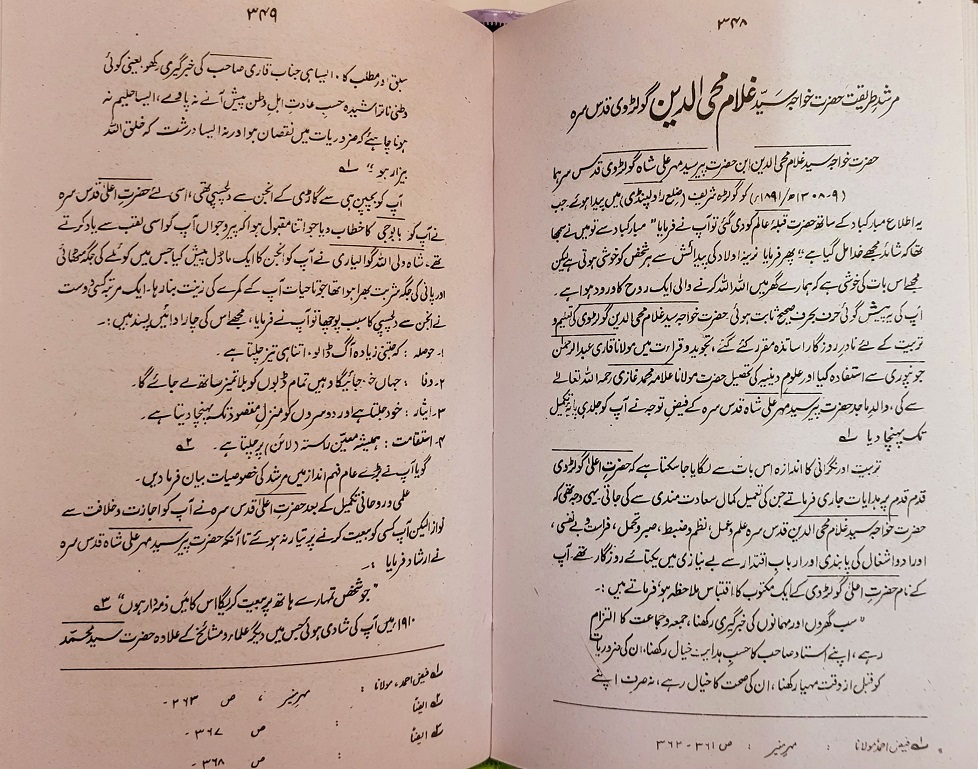 ۳۴۸
مرشدِ طریقت حضرت خواجہ سیّد غلام محی الدین گولڑوی قدس سرہ
حضرت خواجہ سید غلام محی الدین ابن حضرت پیر سید مہر علی شاہ گولڑوی قدس سرہما
(۹-۱۳۰۸ھ/۱۸۹۱ء) کو گولڑہ شریف (ضلع راولپنڈی) میں پیدا ہوئے جب
یہ اطلاع مبارکباد کے ساتھ حضرت قبلۂ عالم کو دی گئی تو آپ نے فرمایا " مبارکباد سے تو میں نے سمجھا
تھا کہ شاید مجھے خدا مل گیا ہے" پھر فرمایا نرینہ اولاد کی پیدائش سے ہر شخص کو خوشی ہوتی ہے لیکن
مجھے اس بات کی خوشی ہے کہ ہمارے گھر میں اللہ اللہ کرنے والی ایک روح کا ورود ہوا ہے۔
آپ کی یہ پیش گوئی حرف بحرف صحیح ثابت ہوئی حضرت خواجہ سید غلام محی الدین گولڑوی کی تعلیم و
تربیت کے لئے نادرِ روزگار اساتذہ مقرر کئے گئے، تجوید و قراءت میں مولانا قاری عبدالرحمٰن
جونپوری سے استفادہ کیا اور علومِ دینیہ کی تحصیل حضرت مولانا علامہ محمد غازی رحمہ اللہ تعالیٰ
سے کی، والد ماجد حضرت پیر سید مہر علی شاہ قدس سرہ کے فیضِ توجہ نے آپ کو جلد ہی پایۂ تکمیل
تک پہنچا دیا ۱ے
تربیت اور نگرانی کا اندازہ اس بات سے لگایا جا سکتا ہے کہ حضرتِ اعلیٰ گولڑوی
قدم قدم پر ہدایات جاری فرماتے جن کی تعمیل کمال سعادت مندی سے کی جاتی۔ یہی وجہ تھی کہ
حضرت خواجہ سید غلام محی الدین قدس سرہ علم و عمل، نظم و ضبط، صبر و تحمل، فراست بے نفسی،
اوراد و اشغال کی پابندی اور اربابِ اقتدار سے بے نیازی میں یکتائے روزگار تھے۔ آپ
کے نام حضرتِ اعلیٰ گولڑوی کے ایک مکتوب کا اقتباس ملاحظہ ہو، فرماتے ہیں :۔
" سب گھروں اور مہمانوں کی خبرگیری رکھنا، جمعہ و جماعت کا التزام
رہے، اپنے استاد صاحب کا حسبِ ہدایت خیال رکھنا، ان کی ضروریات
کو قبل از وقت مہیا رکھنا، ان کی صحت کا خیال رہے، نہ صرف اپنے
۱ے فیض احمد مولانا : مہرِ منیر : ص ۳۶۱-۳۶۲
۳۴۹
سبق اور مطلب کا۔ ایسا ہی جناب قاری صاحب کی خبرگیری رکھو یعنی کوئی
وطنی ناتراشیدہ حسبِ عادتِ اہلِ وطن پیش آنے نہ پاوے، ایسا حلیم نہ
ہونا چاہئے کہ ضروریات میں نقصان ہو اور نہ ایسا درشت کہ خلق اللہ
بیزار ہو " ۱ے
آپ کو بچپن ہی سے گاڑی کے انجن سے دلچسپی تھی، اسی لئے حضرتِ اعلیٰ قدس سرہ
نے آپ کو بابوجی کا خطاب دیا جو اتنا مقبول ہوا کہ پیر و جواں آپ کو اسی لقب سے یاد کرتے
تھے۔ شاہ ولی اللہ گوالیاری نے آپ کو انجن کا ایک ماڈل پیش کیا جس میں کوئلے کی جگہ مٹھائی
اور پانی کی جگہ شربت بھرا ہوا تھا جو تاحیات آپ کے کمرے کی زینت بنا رہا۔ ایک مرتبہ کسی دوست
نے انجن سے دلچسپی کا سبب پوچھا تو آپ نے فرمایا، مجھے اس کی چار ادائیں پسند ہیں :۔
۱۔ حوصلہ : کہ جتنی زیادہ آگ ڈالو، اتنا ہی تیز چلتا ہے ۔
۲۔ وفا : جہاں خود جائیگا وہیں تمام ڈبوں کو بلا تمیز ساتھ لے جائے گا۔
۳۔ ایثار : خود جلتا ہے اور دوسروں کو منزلِ مقصود تک پہنچا دیتا ہے۔
۴۔ استقامت : ہمیشہ معیّن راستہ (لائن) پر چلتا ہے ۔ ۲ے
گویا آپ نے بڑے عام فہم انداز میں مرشد کی خصوصیات بیان فرما دیں۔
علمی و روحانی تکمیل کے بعد حضرتِ اعلیٰ قدس سرہ نے آپ کو اجازت و خلافت سے
نوازا لیکن آپ کسی کو بیعت کرنے پر تیار نہ ہوئے تا آنکہ حضرت پیر سید مہر علی شاہ قدس سرہ
نے ارشاد فرمایا :۔
"جو شخص تمہارے ہاتھ پر بیعت کریگا اس کا میں ذمہ دار ہوں" ۳ے
۱۹۱۰ء میں آپ کی شادی ہوئی جس میں دیگر علماء و مشائخ کے علاوہ حضرت سید محمد
۱ے فیض احمد، مولانا : مہرِ منیر ، ص ۳۶۳ ۔
۲ے ایضاً : ص ۳۶۷ ۔
۳ے ایضاً : ص ۳۶۸ ۔